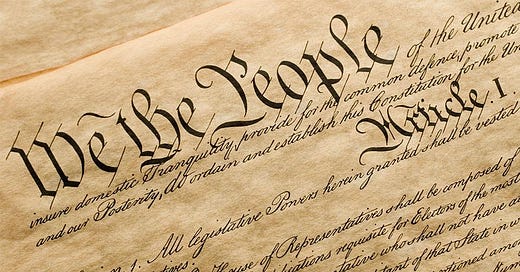 We the People of the United
insure domestic Tranquility, provide for the common defence, promote
and our Posterity, do ordain and establish this Constitution for the Uni
Article. I.
1. All legislative Powers herein granted shall be vested
House of Representatives shall be composed of
requisite for Electors of the most
who shall not have a
of that State in w